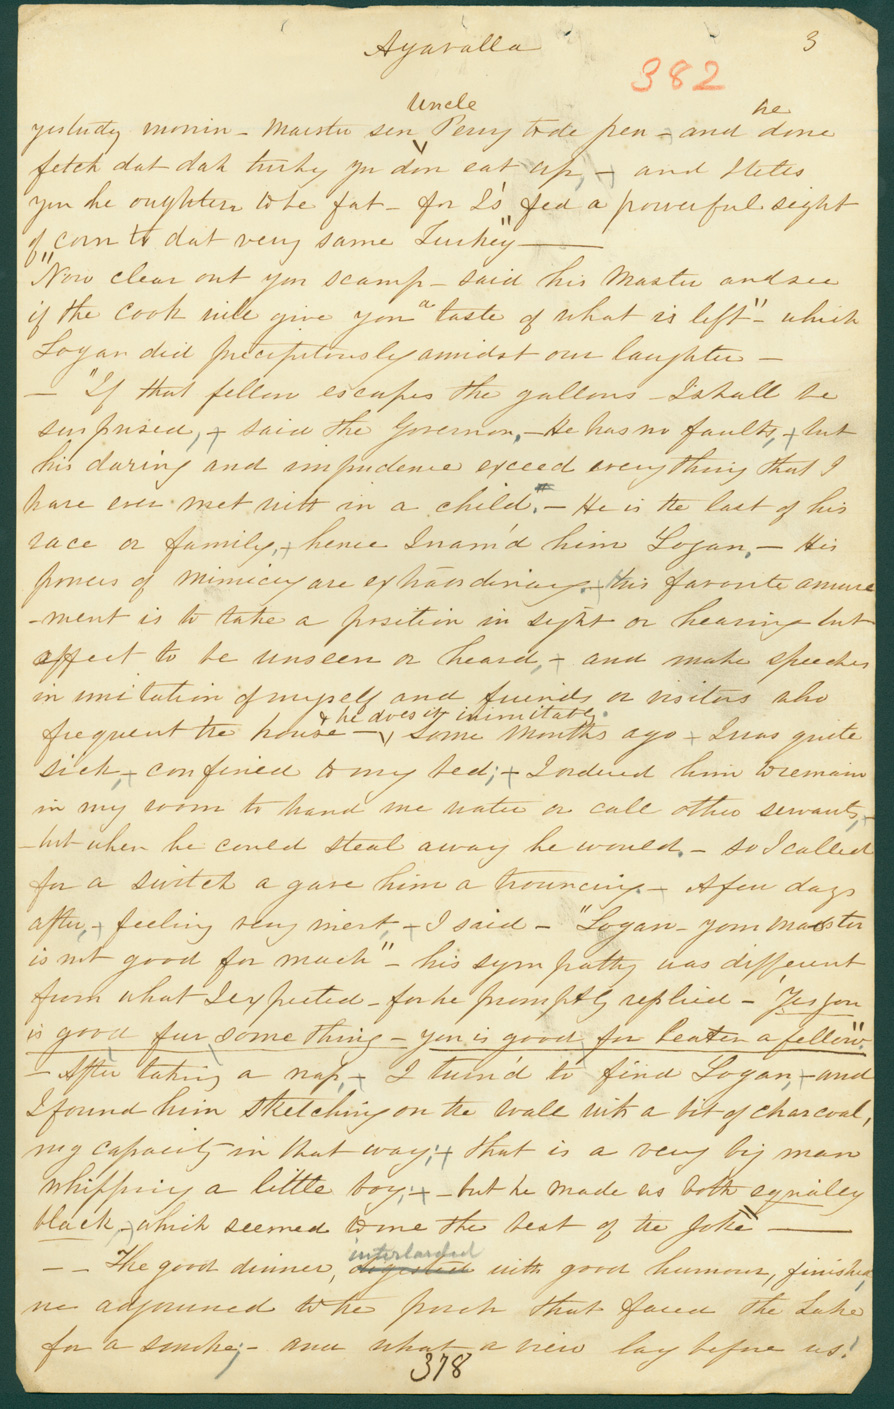 Ayavalla 3
382
Uncle he
yesterdy mornin - Maester sen Perry to de pen - and done
fetch dat dah turky yu don eat up, - and states
you he oughten to be fat - for I's fed a powerful sight
of corn to dat very same Turkey" —
"Now clear out you scamp - said his Master and see
if the cook will give you a taste of what is left" - which
Logan did precipitously amidst our laughter -
- "If that fellow escapes the gallows - I shall be
surprised, - said the Governor, - He has no faults, - but
his daring and impudence exceed everything that I
have ever met with in a child." - He is the last of his
race or family, - hence I nam'd him Logan, - His
powers of mimicry are extraordinary. - his favorite amuse
-ment is to take a position in sight or hearing but
affect to be unseen or heard, - and make speeches
in imitation of myself and friends or visitors who
& he does it inimitably.
frequent the house - Some months ago - I was quite
sick, - confined to my bed; - I ordered him to remain
in my room to hand me water or call other servants, -
- but when he could steal away he would. - so I called
for a switch a gave him a trouncing. - A few days
after, - feeling very inert, - I said - "Logan - your master
is not good for much" - his sympathy was different
from what I expected - for he promptly replied - "Yes you
is good fur some thing - you is good for beaten a fellow".
- After taking a nap, - I turn'd to find Logan, - and
I found him sketching on the wall with a bit of charcoal,
my capacity in that way; - that is a very big man
whipping a little boy; - - but he made us both equaley
black - which seemed to me the best of the Joke" —
interlarded
- - The good dinner, digested with good humour, finished,
we adjourned to the porch that faced the Lake
for a smoke; - and what a view lay before us!
378